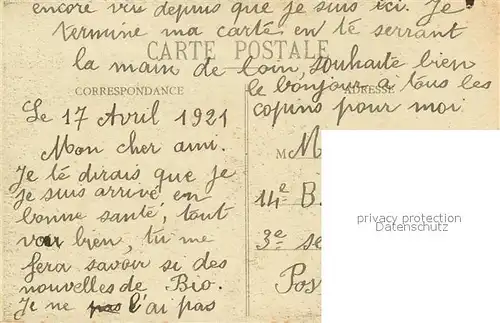 encore vu depuis que je suis ici. Je
termine ma carte en té serrant
CARTE POSTALE
la main de loin, souhaite bien
le bonjour a tous les
CORRESPONDANCE
ADRESSE
copins pour moi
Le 17 Avril 1921
Mon cher ami.
Je té dirais que je
je suis arrivé en
bonne santé, tout
va bien, tu me
fera savoir si des
nouvelles de Bio.
Je ne pas l'ai pas
M
14e B
3e se
Pos
privacy protection
Datenschutz